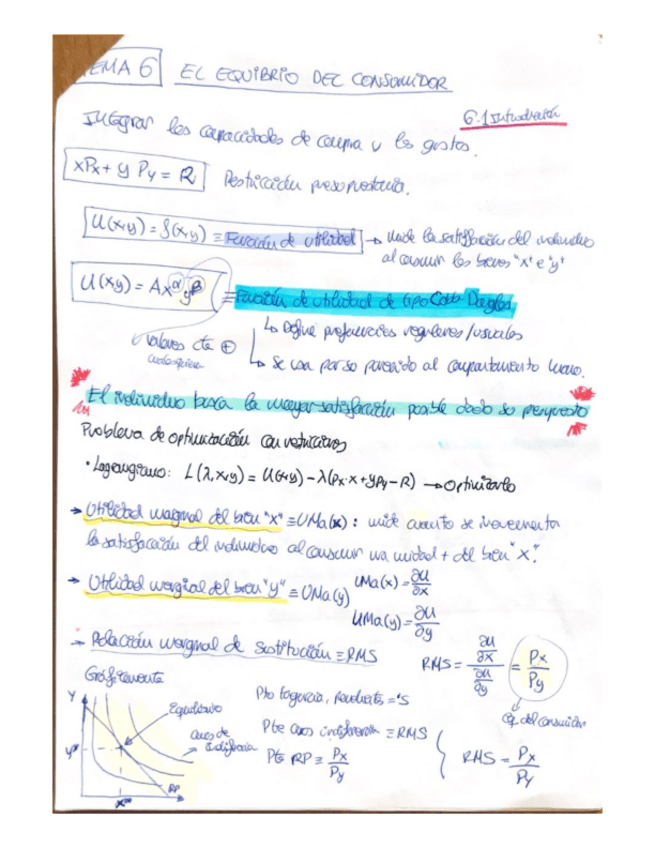 TEMA 6 EL EQUIBRIO DEL CONSUMIDOR
6.1 Introducción
Integrar las capacidades de compra y los gustos.
xPx + y Py = R Restricción presupuestaria.
U(x,y) = f(x,y) ≡ Función de utilidad → mide la satisfacción del individuo
al consumir los bienes "x" e "y"
U(x,y) = Ax^α y^β ≡ Función de utilidad de tipo Cobb-Douglas
↳ Define preferencias regulares/usuales
Valores cte ⊕
cualesquiera
↳ Se usa por su parecido al comportamiento humano.
El individuo busca la mayor satisfacción posible dado su presupuesto
Problema de optimización con restricciones
• Lagrangiano: L(λ,x,y) = U(x,y) - λ(Px·x + yPy - R) → Optimizarlo
→ Utilidad marginal del bien "x" ≡ UMa(x): mide cuanto se incrementa
la satisfacción del individuo al consumir una unidad + del bien "x".
→ Utilidad marginal del bien "y" ≡ UMa(y) UMa(x) = ∂U/∂x
UMa(y) = ∂U/∂y
→ Relación marginal de Sustitución ≡ RMS RMS = (∂U/∂x)/(∂U/∂y) = Px/Py
Gráficamente
Eq. del consumidor
Y
Equilibrio
Curvas de
Indiferencia
y*
RP
x*
Pto tangencia, pendientes = 's
Pte curvas indiferencia ≡ RMS
Pte RP ≡ Px/Py
RMS = Px/Py